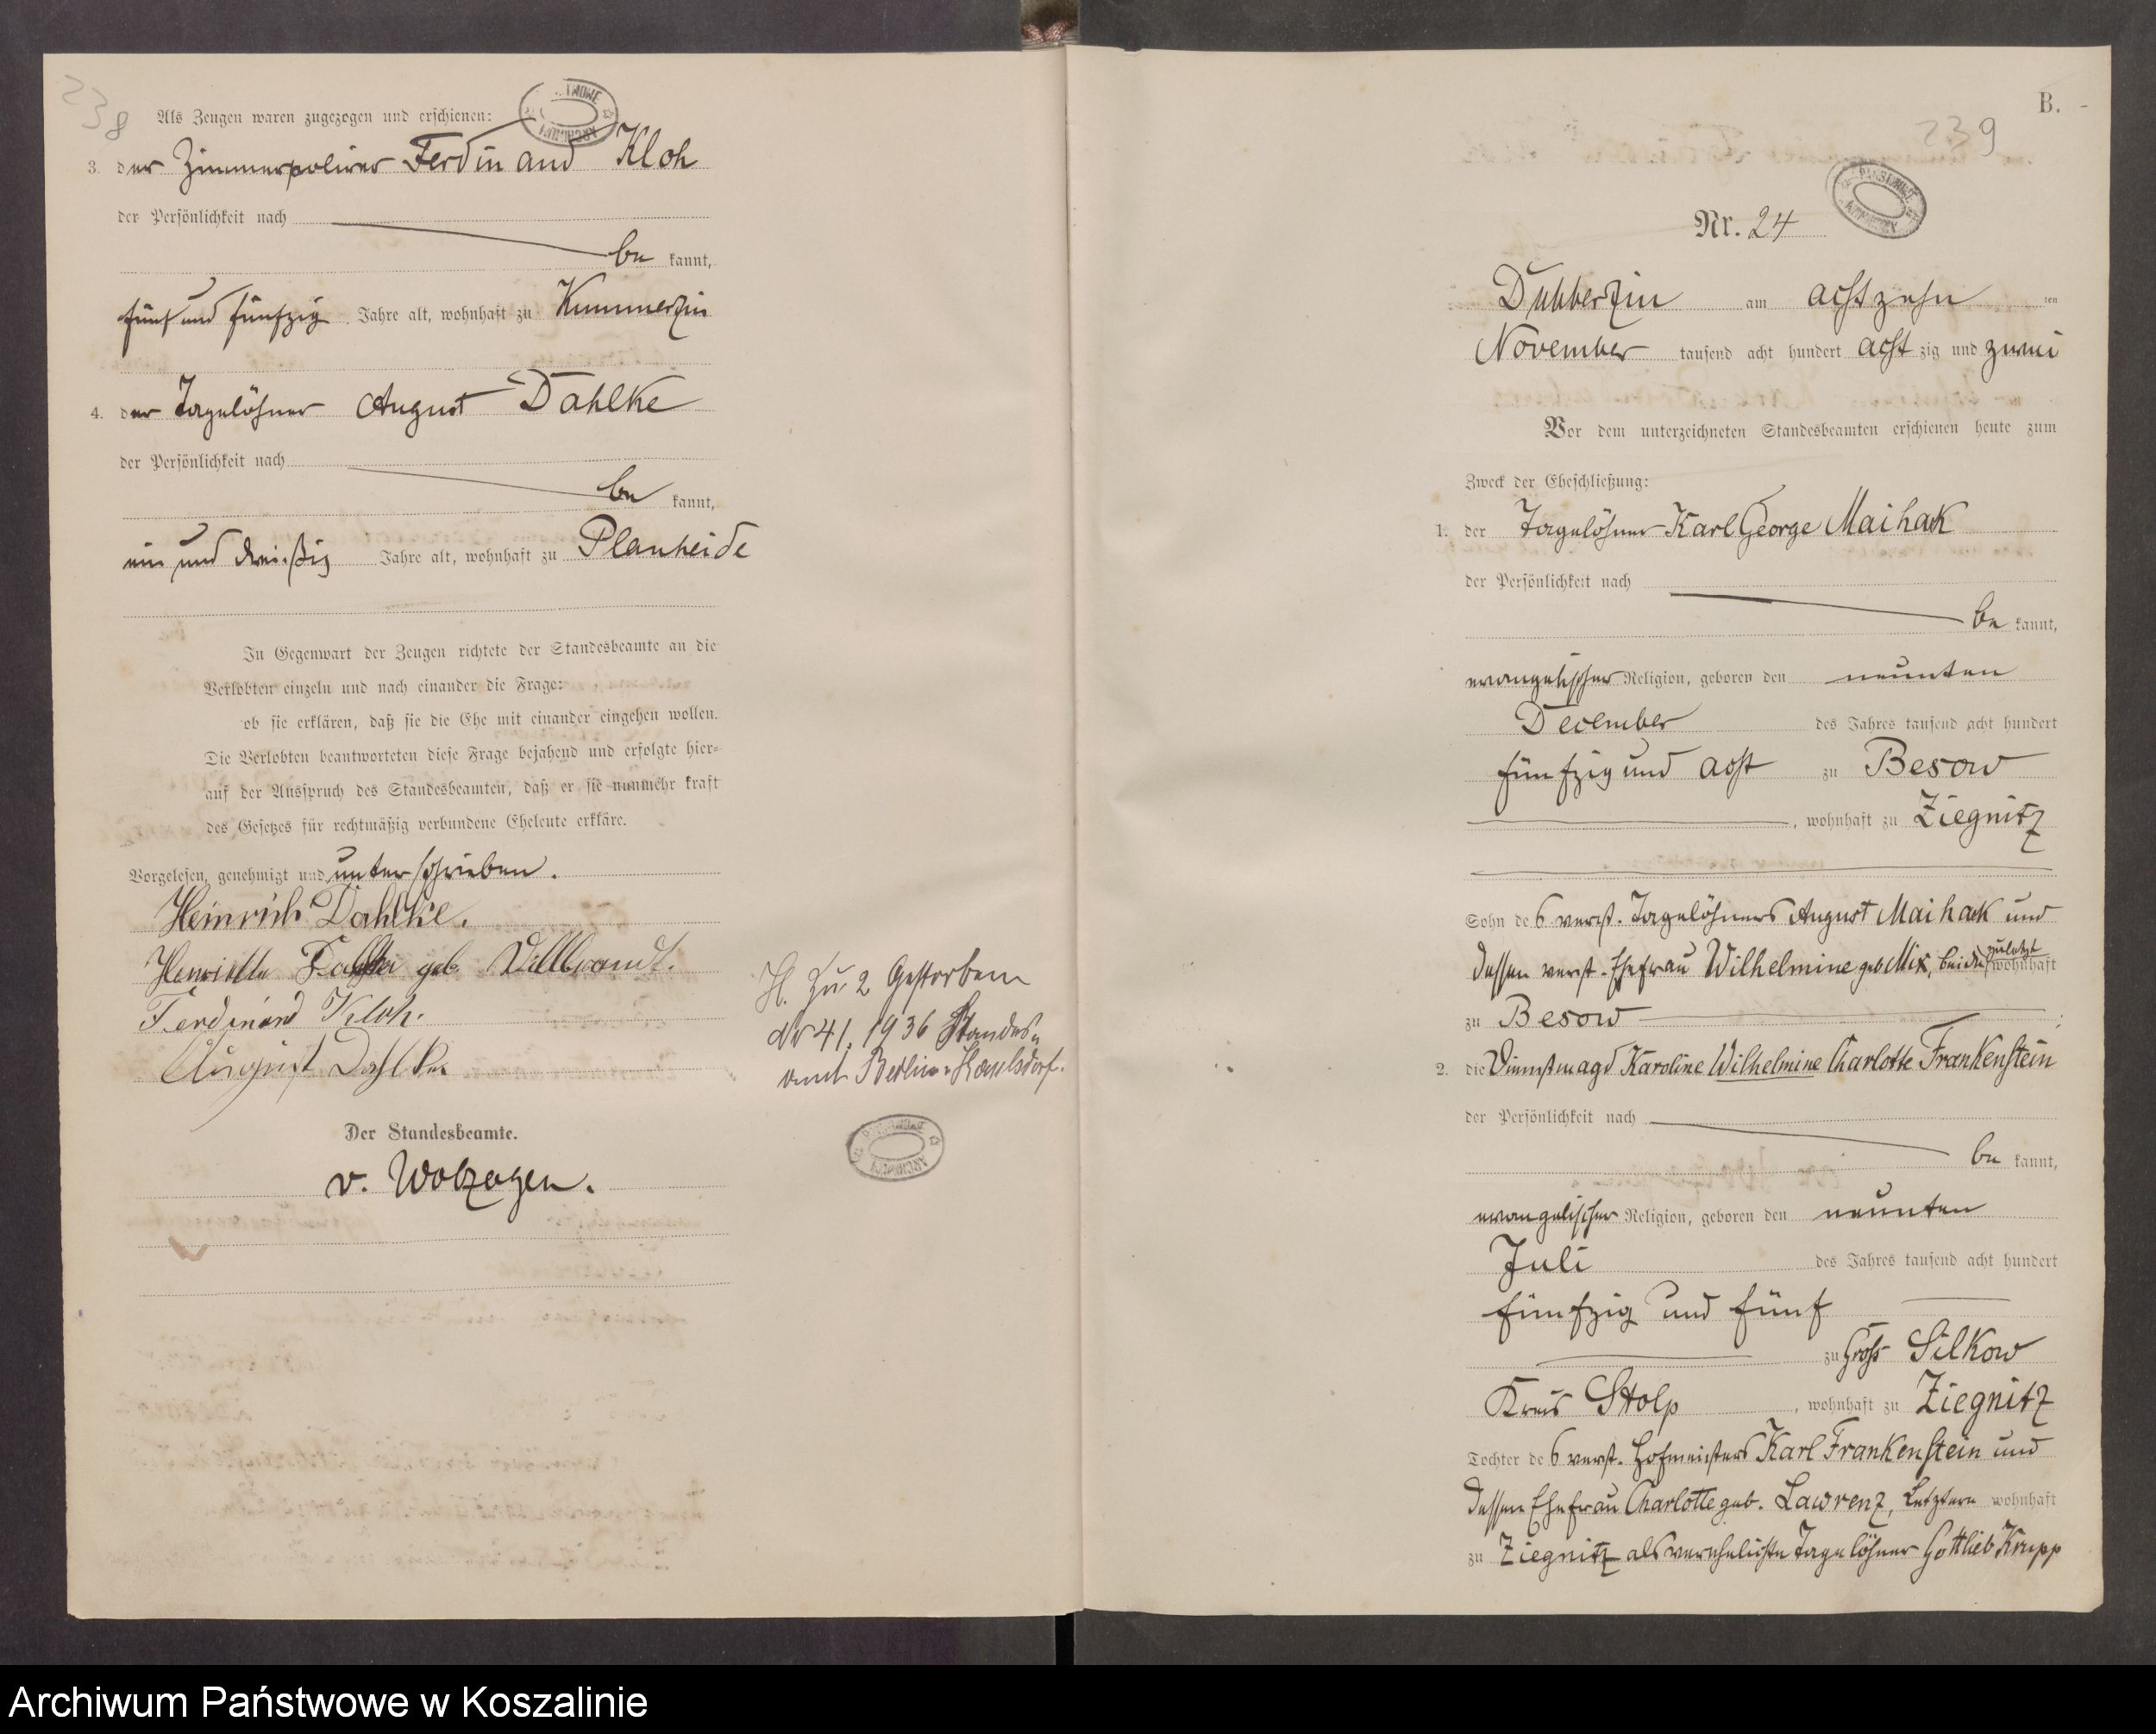 238
Als Zeugen waren zugezogen und erschienen:
3. der Zimmerpolirer Ferdinand Kloh
der Persönlichkeit nach
be kannt,
fünf und fünfzig Jahre alt, wohnhaft zu Kummerzin
4. der Tagelöhner August Dahlke
der Persönlichkeit nach
be kannt,
ein und dreißig Jahre alt, wohnhaft zu Planheide
In Gegenwart der Zeugen richtete der Standesbeamte an die
Verlobten einzeln und nach einander die Frage:
ob sie erklären, daß sie die Ehe mit einander eingehen wollen.
Die Verlobten beantworteten diese Frage bejahend und erfolgte hier-
auf der Ausspruch des Standesbeamten, daß er sie nunmehr kraft
des Gesetzes für rechtmäßig verbundene Eheleute erkläre.
Vorgelesen, genehmigt und unterschrieben.
Heinrich Dahlke.
Henriette geb. Villbrandt.
Ferdinand Kloh.
August Dahlke
H. Zu 2 Gestorben
Nr 41. 1936 Standes-
amt Berlin-Kaulsdorf.
Der Standesbeamte.
v. Wolzogen.
B.
239
Nr. 24
Dubberzin am achtzehn ten
November tausend acht hundert acht zig und zwei
Vor dem unterzeichneten Standesbeamten erschienen heute zum
Zweck der Eheschließung:
1. der Tagelöhner Karl George Maihak
der Persönlichkeit nach
be kannt,
evangelischer Religion, geboren den neunten
December des Jahres tausend acht hundert
fünfzig und acht zu Besow
, wohnhaft zu Ziegnitz
Sohn des verst. Tagelöhners August Maihack und
dessen verst. Ehefrau Wilhelmine geb. Mix, beide zuletzt wohnhaft
zu Besow
2. die Dienstmagd Karoline Wilhelmine Charlotte Frankenstein
der Persönlichkeit nach
be kannt,
evangelischer Religion, geboren den neunten
Juli des Jahres tausend acht hundert
fünfzig und fünf
zu Groß Silkow
Kreis Stolp, wohnhaft zu Ziegnitz
Tochter des verst. Hofmeisters Karl Frankenstein und
dessen Ehefrau Charlotte geb. Lawrenz, Letztere wohnhaft
zu Ziegnitz als verehelichte Tagelöhner Gottlieb Krupp
Archiwum Państwowe w Koszalinie